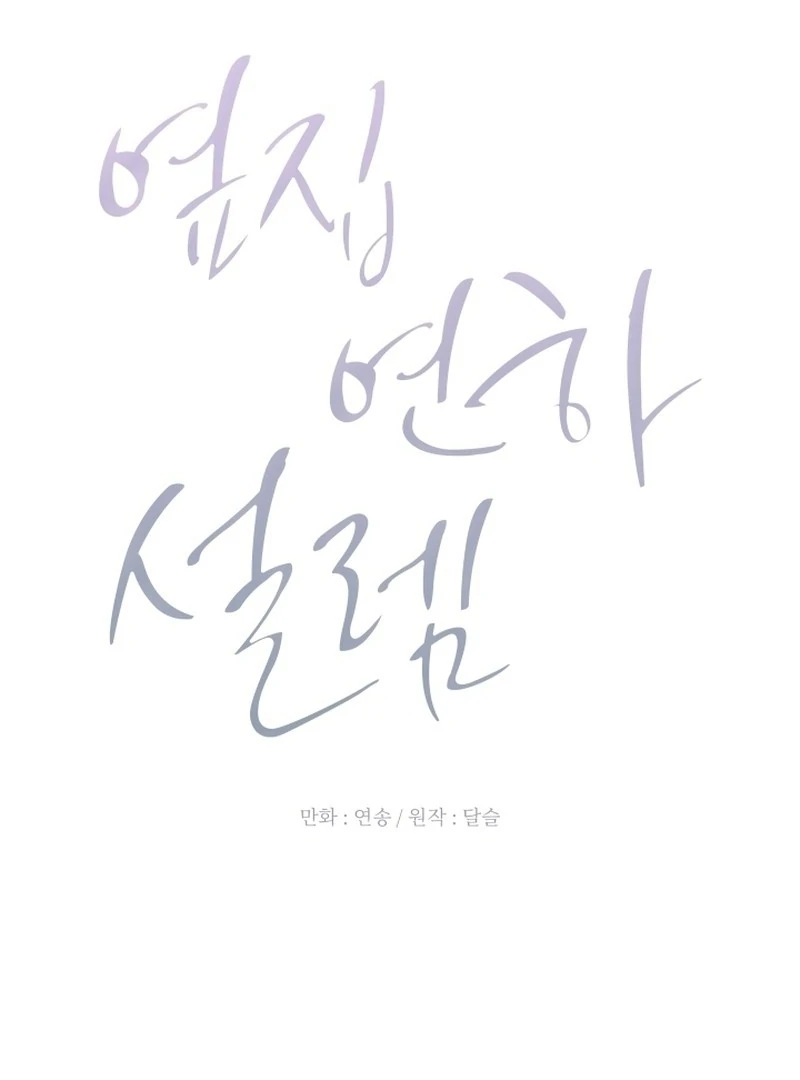 옆집
연하
설렘
만화 : 연송 / 원작 : 달슬